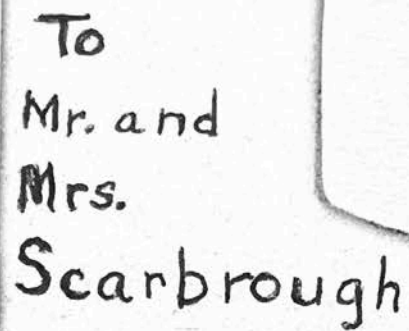 To
Mr. and
Mrs.
Scarbrough